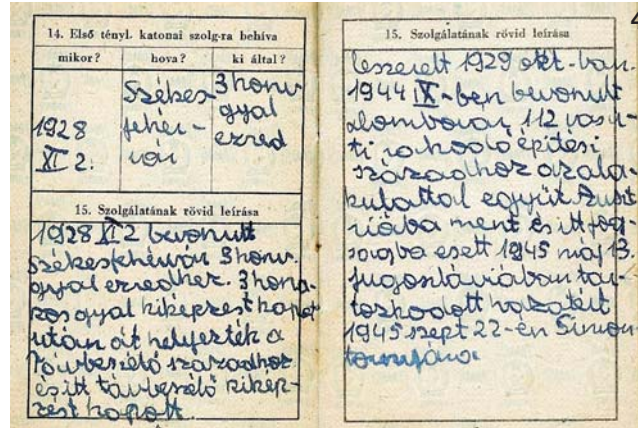 14. Első tényl. katonai szolg-ra behíva
mikor?
hova?
ki által?
1928
XI 2.
Székes
fehér-
vár
3 honv.
gyal
ezred
15. Szolgálatának rövid leírása
1928 XI 2 bevonult
Székesfehérvár 3 honv.
gyal ezredhez. 3 hóna-
pos gyal kiképzést kapot
után át helyezték a
Távbeszélő századhoz
és itt távbeszélő kikép-
zést kapott.
4
15. Szolgálatának rövid leírása
leszerelt 1929 okt-ban.
1944 IX-ben bevonult
dombovár 112 vasú-
ti rakodó építési
századhoz az ala-
kulattal együt Auszt
riába ment és itt fog-
ságba esett 1945 máj 13.
Jugoszláviában tar-
tozkodott hazatért
1945 szept 22-én Simon-
tornyára.